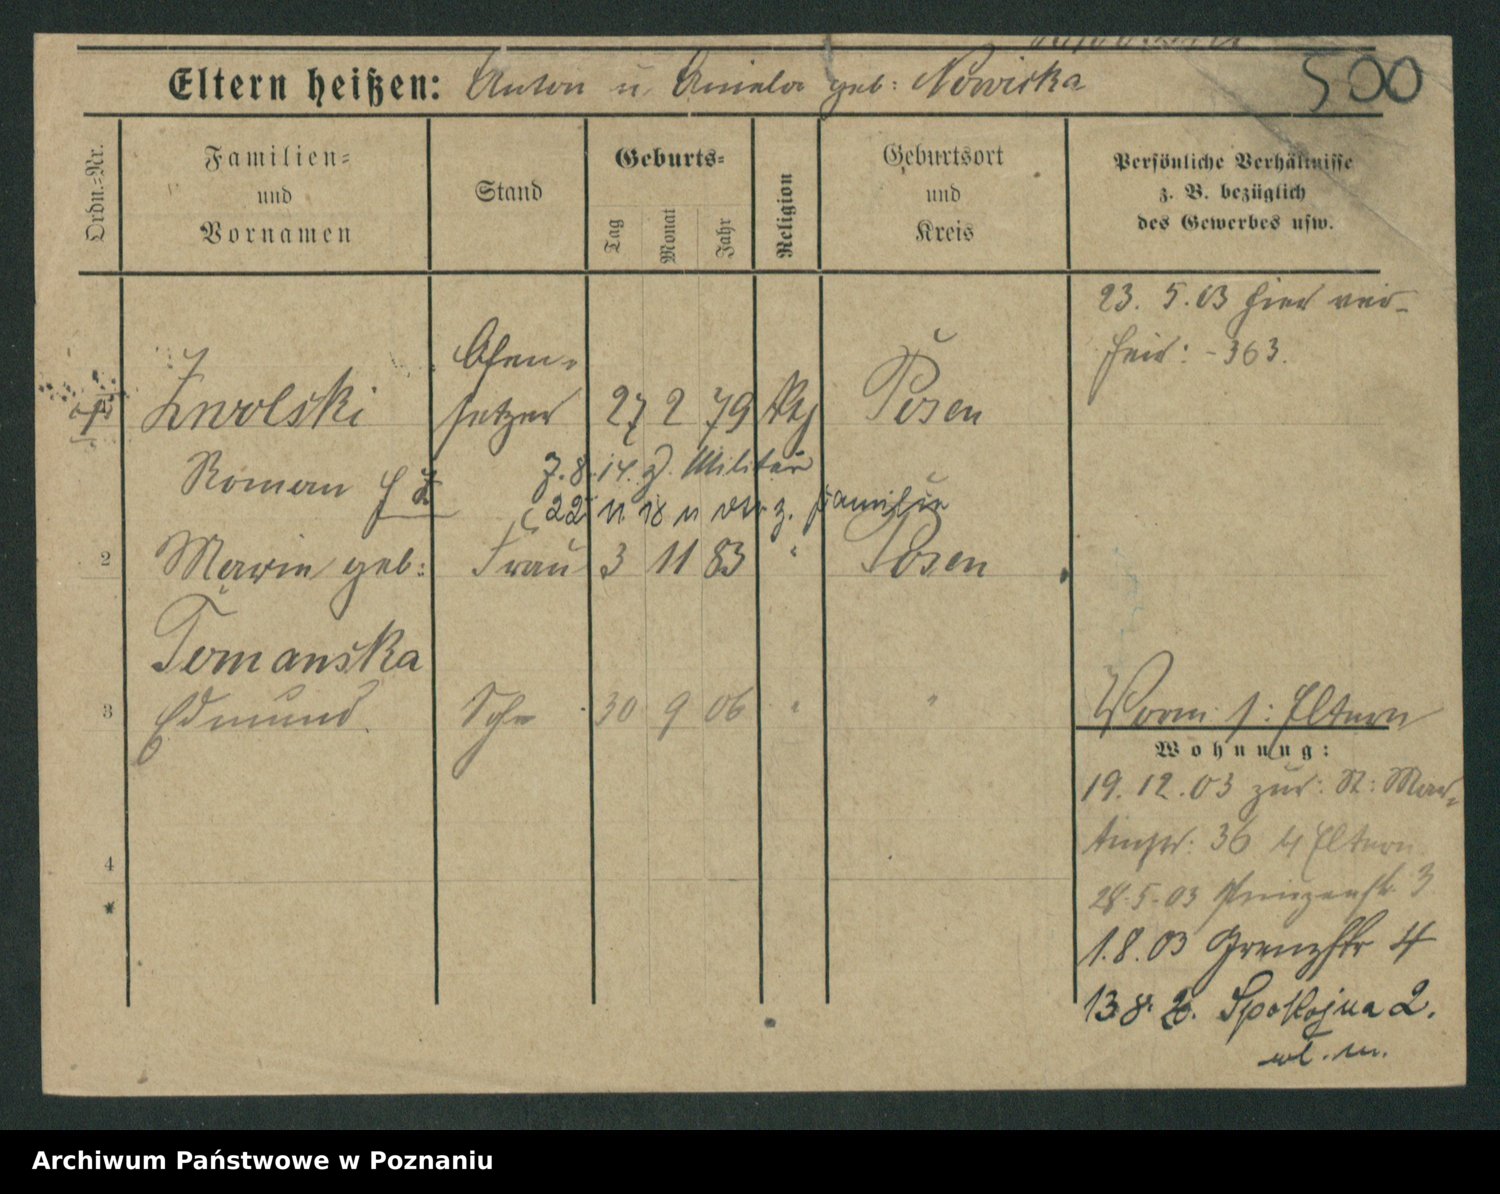 Eltern heißen: Anton u. Aniela geb: Nowicka
500
Ordn.-Nr.
Familien- und Vornamen
Stand
Geburts-
Tag
Monat
Jahr
Religion
Geburtsort und Kreis
Persönliche Verhältnisse
z. B. bezüglich
des Gewerbes usw.
23. 5. 03 hier ver-
heir: - 363.
Ofen-
1 Zwolski setzer 27 2 79 Posen
Roman
7. 8. 14. z. Militär
22 11 18 v z. Familie
2 Marie geb: Frau 3 11 83 " Posen
Tomanska
3 Edmund Sohn 30 9 06 " "
4
Wohnung:
Eltern
19. 12. 03 zur: St: Mar-
tinstr: 36 Eltern
28. 5. 03 Prinzenstr. 3
1. 8. 03 Grenzstr 4
13. 8. Spokojna 2.
wł. m.
Archiwum Państwowe w Poznaniu